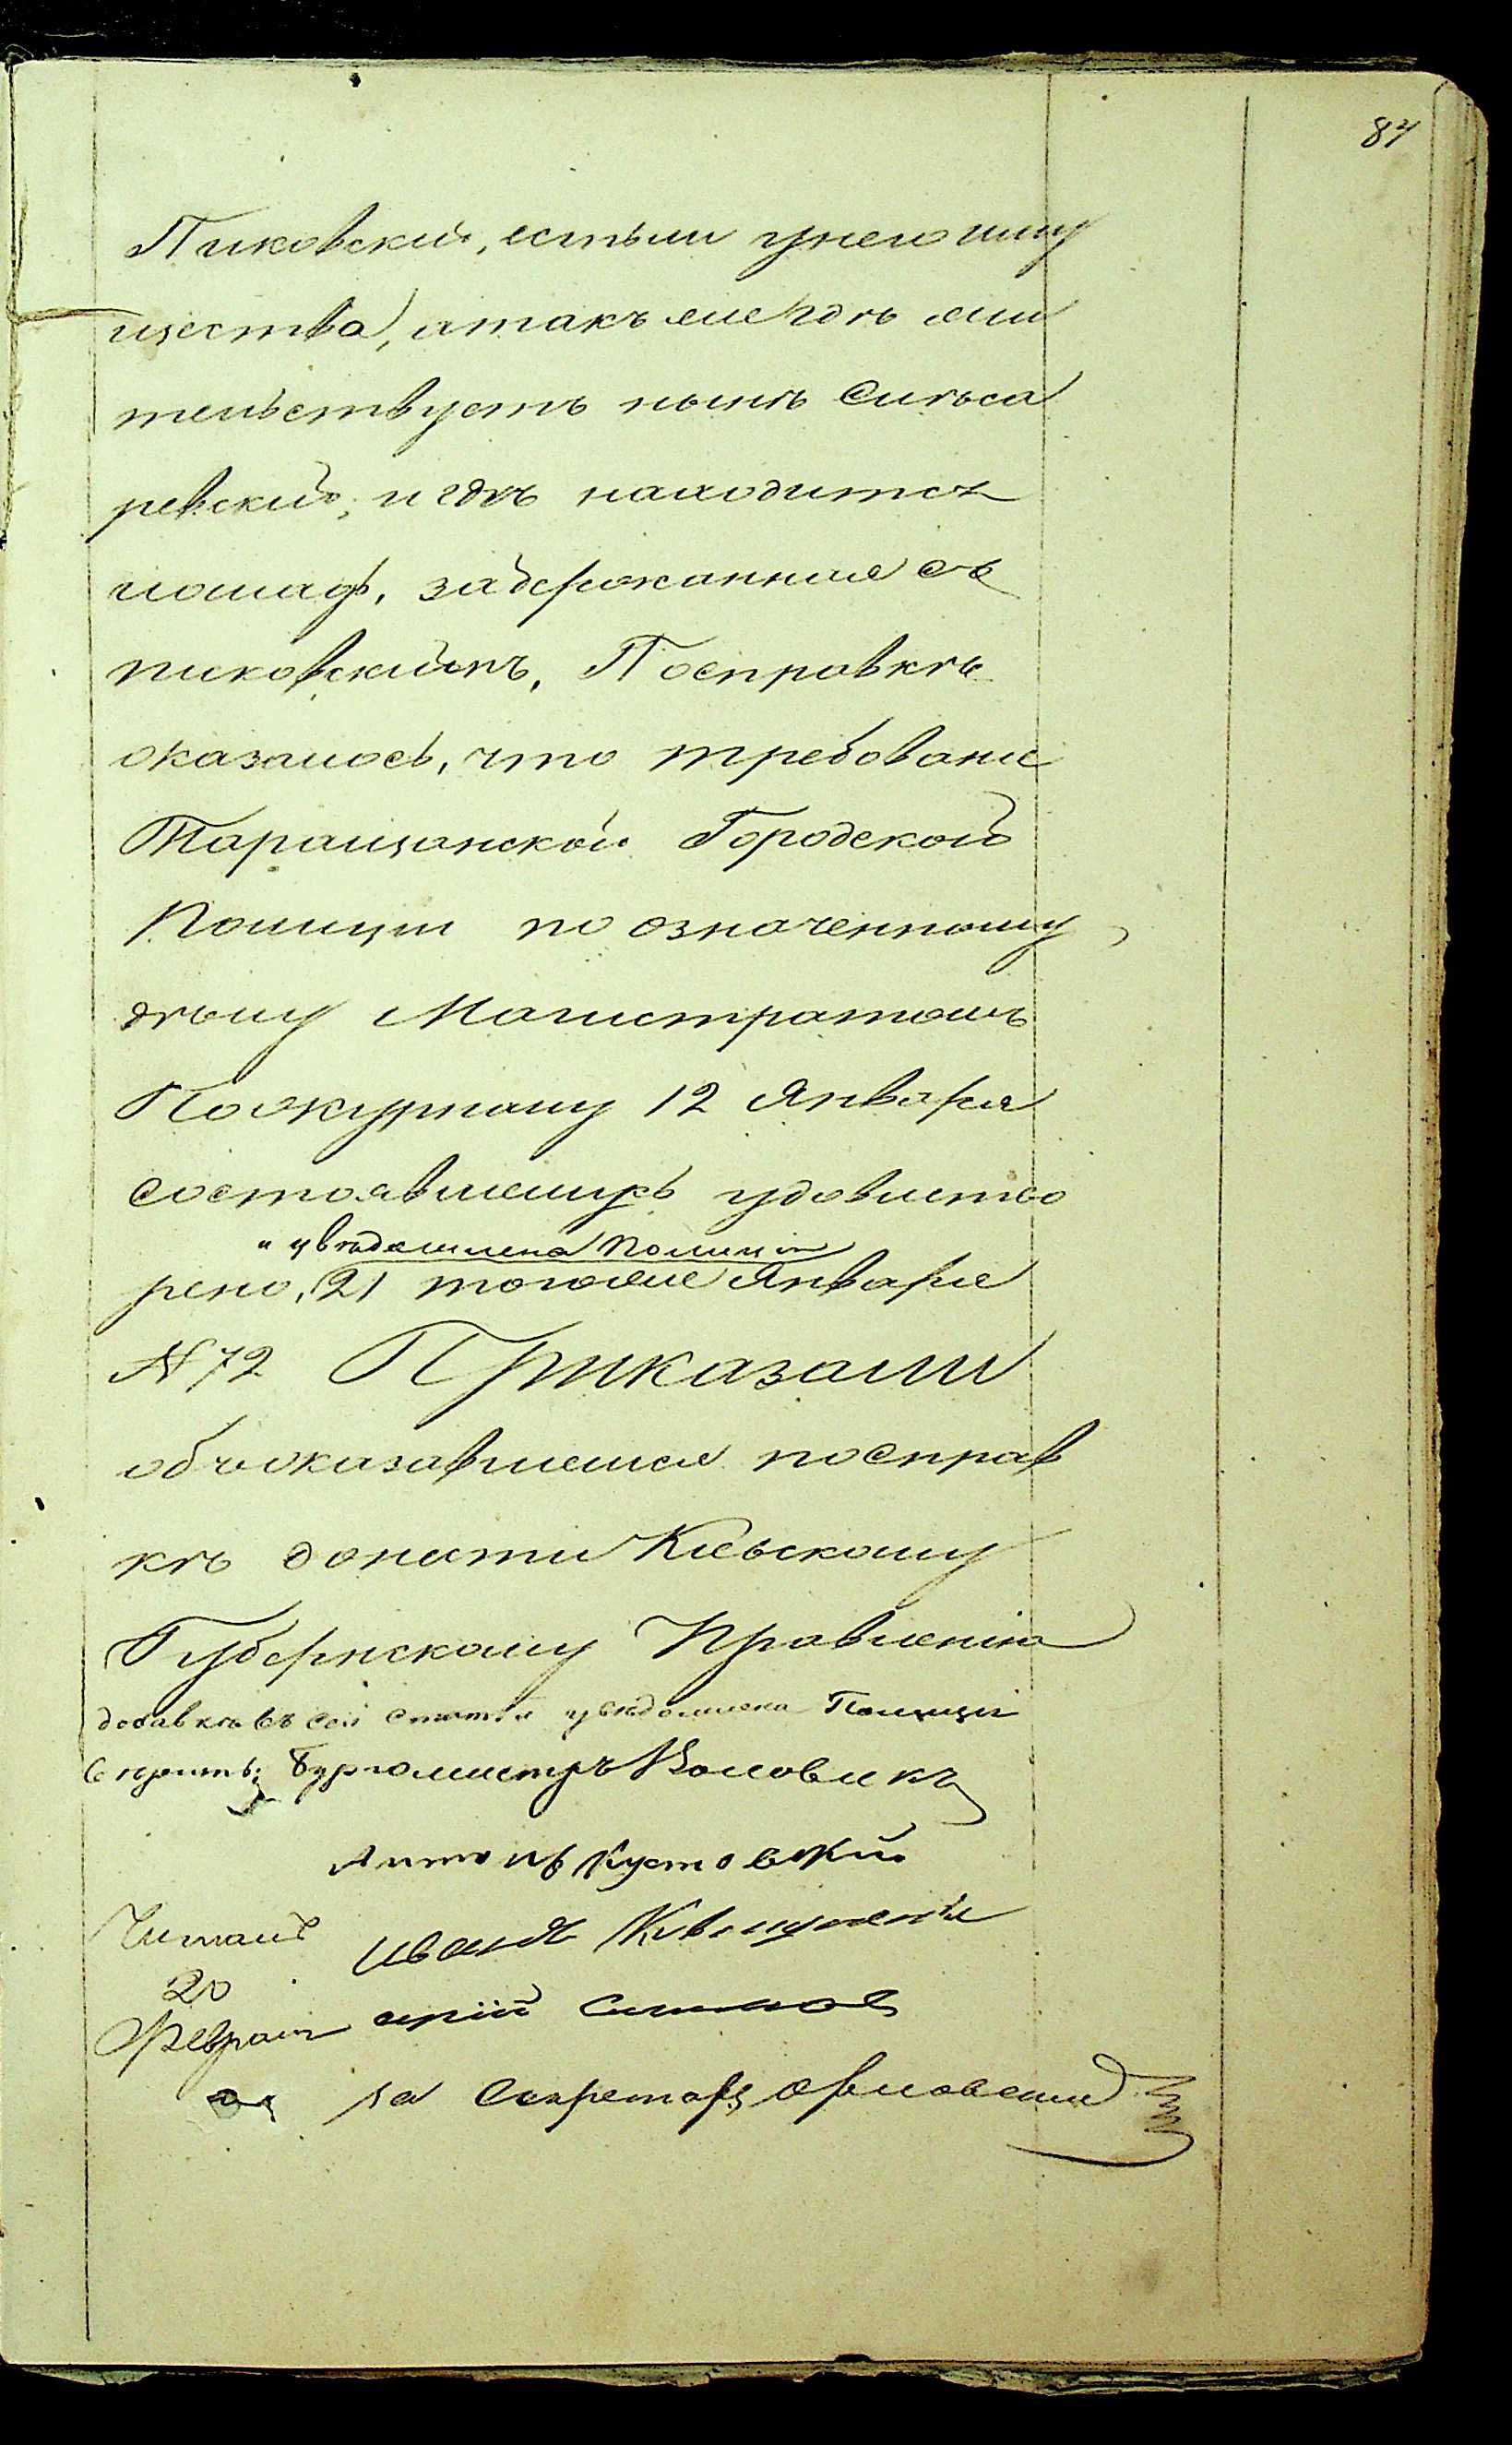 84
Пиковский, естьли унего иму
щества, атакъ же гдѣ жи
тельствуетъ нынѣ Слюса
ревский, и гдѣ находится
лошадь, задержанная съ
пиковскимъ, Посправкѣ
оказалось, что требование
Таращанской Городской
Полиции по означенному
дѣлу Магистратомъ
Пожурналу 12 Января
состоявшемусь удовлетво
и увѣдомлена Полиция
рено, 21 тогоже Января
N 72 Приказали
объоказавшемся посправ
кѣ донести Киевскому
Губернскому Правлению
добавкѣ въ сей статьи увѣдомлена Полиция
вѣрить: Бургомистръ Воловикъ
Антонъ Кустовский
Иванъ
Читалъ
20
Февраля
за Секретаря Орловский